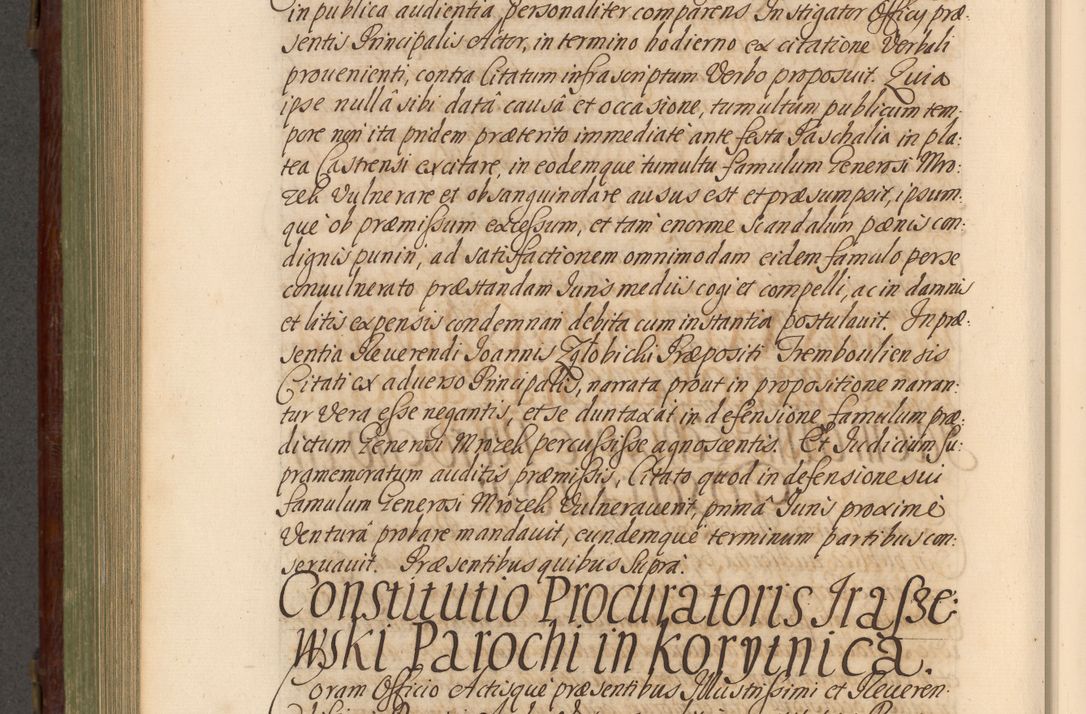 in publica audientia, personaliter comparens Instigator Officij præ:
sentis Principalis Actor, in termino hodierno ex citatione Verbali
prouenienti, contra Citatum infrascriptum Verbo proposuit. Quia
ipse nullâ sibi datâ causâ et occasione, tumultum publicum tem:
pore non ita pridem præterito immediatè ante festa Paschalia in pla:
tea Castrensi excitare, in eodemque tumultu famulum Generosi Mro:
zek Vulnerare et obsanguinolare ausus est et præsumpsit, ipsum:
què ob præmissum excessum, et tam enorme scandalum pænis con:
dignis puniri, ad satisfactionem omnimodam eidem famulo per se
conuulnerato præstandam Juris mediis cogi et compelli, ac in damnis
et litis expensis condemnari debita cum instantia postulauit. In præ:
sentia Reuerendi Joannis Zglobicki Præpositi Trembouliensis
Citati ex aduerso Principalis, narrata prout in propositione narran:
tur Vera esse negantis, et se duntaxat in defensione famulum præ:
dictum Generosi Mrozek percussisse agnoscentis. Et Judicium su:
pramemoratum auditis præmissis, Citato quod in defensione sui
famulum Generosi Mrozek Vulnerauerit, primâ Juris proximè
Venturâ probare mandauit, eundemquè terminum partibus con:
seruauit. Præsentibus quibus supra.
Constitutio Procuratoris Iraſze:
wski Parochi in korytnica.
Coram Officio Actisquè præsentibus Illustrissimi et Reueren: